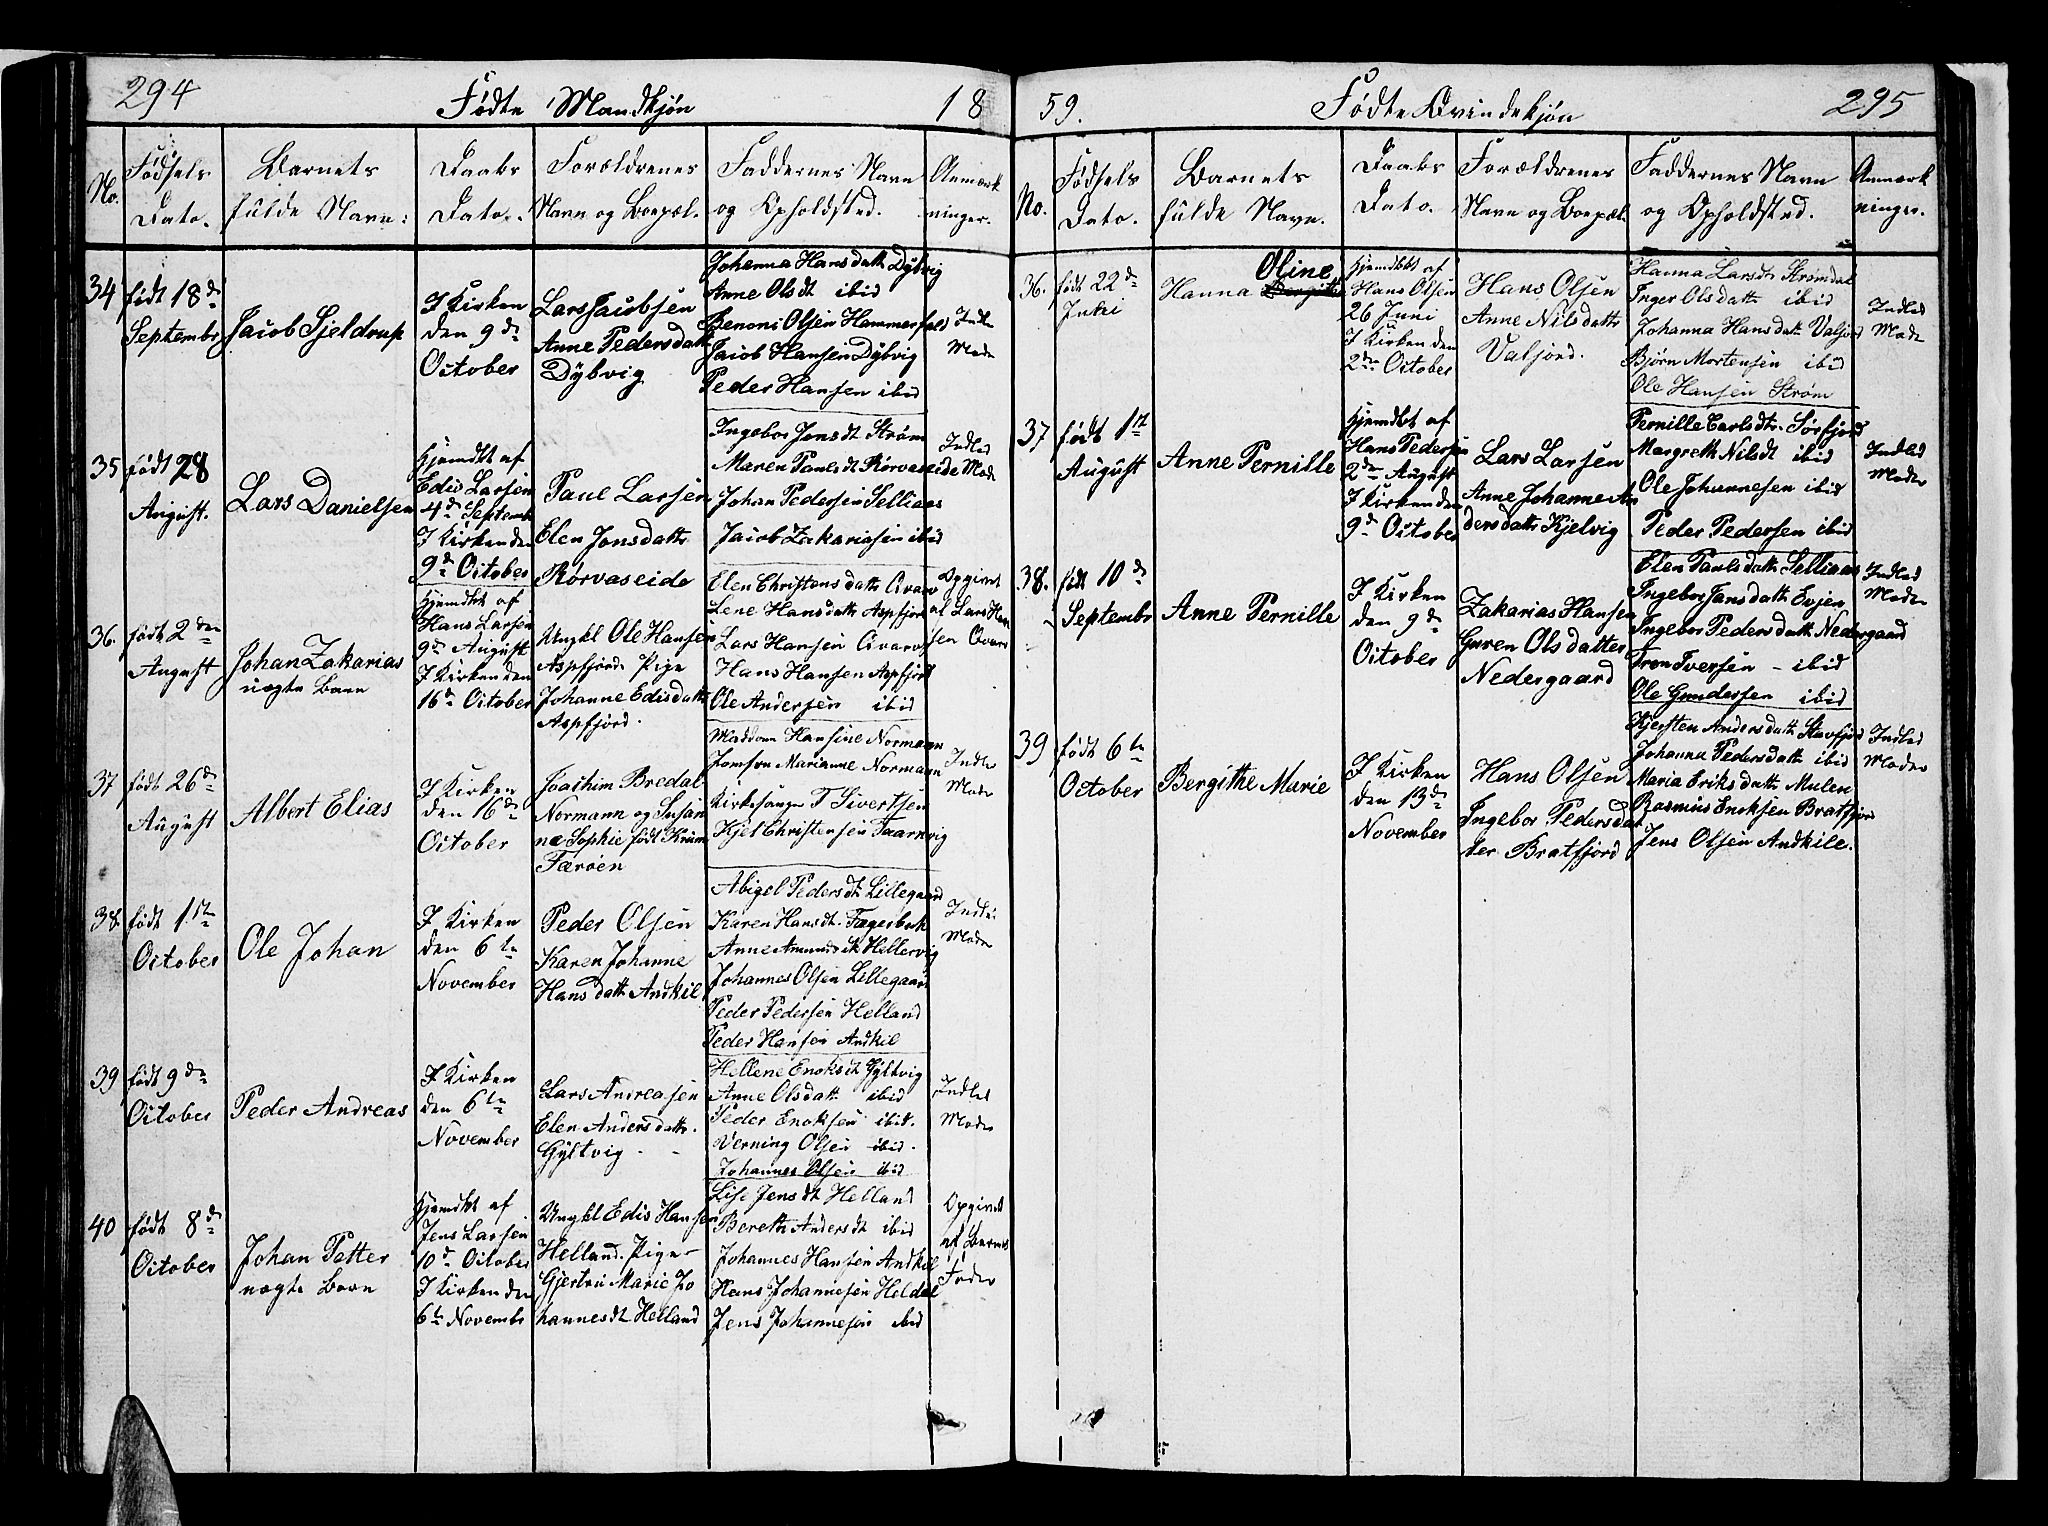 294
Fødte Mandkjøn
18
No.
Fødsels
Dato.
Barnets
fulde Navn:
Daabs
Dato.
Forældrenes
Navn og Boepæl.
Faddernes Navn
og Opholdsted.
Anmærk
ninger.
34
født 18de
Septembr
Jacob Sjeldrup
I Kirken
den 9de
October
Lars Jacobsen
Anne Pedersdatt
Dybvig
Johanna Hansdatt Dybvig
Anne Olsdt ibid
Benoni Olsen Hammerfald
Jacob Hansen Dybvig
Peder Hansen ibid
Indle
Mode
35
født 28
August.
Lars Danielsen
Hjemdbt af
Edis Larsen
4de Septemb
I Kirken den
9de October
Paul Larsen
Elen Jonsdatte
Rørvaseide
Ingebor Jensdt Strøm
Maren Paulsdt Rørvaseide
Johan Pedersen Selliaas
Jacob Zakariasen ibid
Indled
Mod
36.
født 2den
August
Johan Zakarias
uægte Barn
Hjemdbt af
Hans Larsen
9de August
I Kirken den
16de October
Ungkl Ole Hansen
Aspfjord Pige
Johanne Edisdatt
Aspfjord.
Elen Christensdatt Qvarv
Lene Hansdatt Aspfjord
Lars Hansen Qvarv
Hans Hansen Aspfjord
Ole Andersen ibid
Opgivet
af Lars Han
sen Qvarv
37
født 26de
August
Albert Elias
I Kirken
den 16de
October
Joachim Bredal
Normann og Susan
na Sophie født Krum
Færøen
Maddam Hansine Normann
Jomfru Marianne Normann
Kirkesanger T Sivertsen
Kjel Christensen Taarnvig
Indle
Mode
38.
født 1ste
October
Ole Johan
I Kirken
den 6te
November
Peder Olsen
Karen Johanne
Hansdatt Andkil
Abigel Pedersdt Lillegaard
Karen Hansdt. Fagerbak
Anne Amundsdt Hellervig
Johannes Olsen Lillegaard
Peder Pedersen Helland
Peder Hansen Andkil
Indle
Mode
39
født 9de
October
Peder Andreas
I Kirken
den 6te
November
Lars Andreasen
Elen Andersdatte.
Gyltvig
Hellene Enoksdt Gyltvig
Anne Olsdatt ibid
Peder Enoksen ibid.
Verning Olsen ibid.
Johannes Olsen ibid
Indled
Mode
40
født 8de
October
Johan Petter
uægte Barn
Hjemdbt af
Jens Larsen
10de October
I Kirken den
6te Novembr
Ungkl Edis Hansen
Helland. Pige
Gjertru Marie Jo
hannesdt Helland
Lise Jensdt Helland
Bereth Andersdt ibid
Johannes Hansen Andkil
Hans Johannesen Heldal
Jens Johannesen ibid
Opgivet
af Barnets
Fader
59.
Fødte Qvindekjøn
295
No.
Fødsels
Dato.
Barnets
fulde Navn.
Daabs
Dato.
Forældrenes
Navn og Boepæl.
Faddernes Navn
og Opholdsted.
Anmærk
ninger.
36.
født 22de
Juni
Oline
Hanna Bergitte
Hjemdbt af
Hans Olsen
26 Juni
I Kirken den
2den October
Hans Olsen
Anne Nilsdatte
Valjord.
Hanna Larsdt Strømdal
Inger Olsdatt ibid
Johanna Hansdatt Valjord
Bjørn Mortensen ibid
Ole Hansen Strøm
Indled
Mode
37
født 1ste
August
Anne Pernille
Hjemdbt af
Hans Pedersen
2den August
I Kirken den
9de October
Lars Larsen
Anne Johanne An
dersdatte Kjelvig
Pernille Carlsdt. Sørfjord
Margreth Nilsdt ibid
Ole Johannesen ibid
Peder Pedersen ibid
Indled
Moder
38.
født 10de
Septembr
Anne Pernille
I Kirken
den 9de
October
Zakarias Hansen
Guren Olsdatter
Nedergaard
Elen Paulsdatt Selliaas
Ingebor Jansdatt Evjen
Ingebor Pedersdatt Nedergaard
Tron Iversen - ibid
Ole Gundersen ibid
Indled
Moder
39
født 6te
October
Bergithe Marie
I Kirken
den 13de
November
Hans Olsen
Ingebor Pedersdat
ter Bratfjord
Kjersten Andersdatt Stavfjord
Johanna Pedersdatt ibid
Maria Eriksdatt Mulen
Rasmus Enoksen Bratfjord
Jens Olsen Andkile.
Indled
Moder